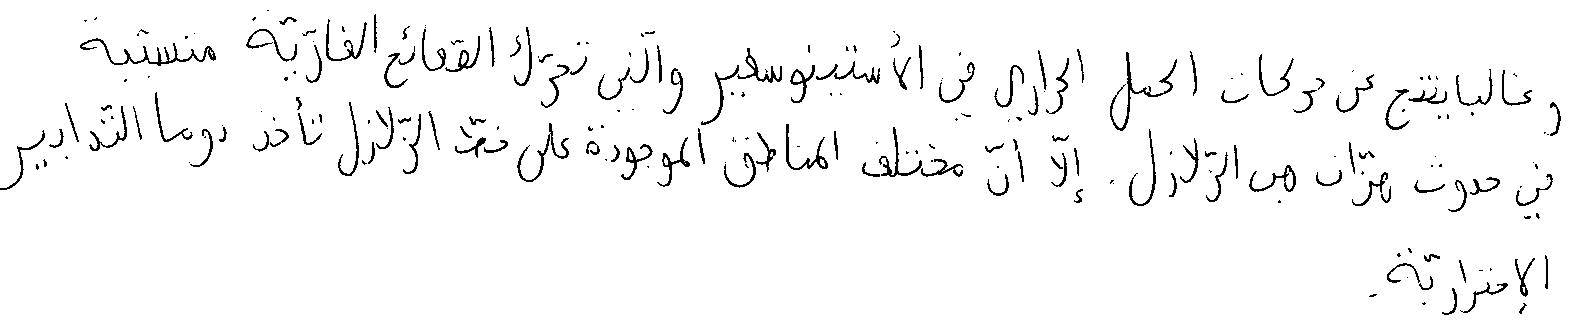 وغالبا ينتج عن حركات الحمل الحراري في الأستينوسفير والّتي تحرّك الصّفائح القارّيّة متسبّبة
في حدوث هزّات هي الزّلازل. إلّا أنّ مختلف المناطق الموجودة على خطّ الزّلازل تأخذ دوما التّدابير
الإحترازيّة.